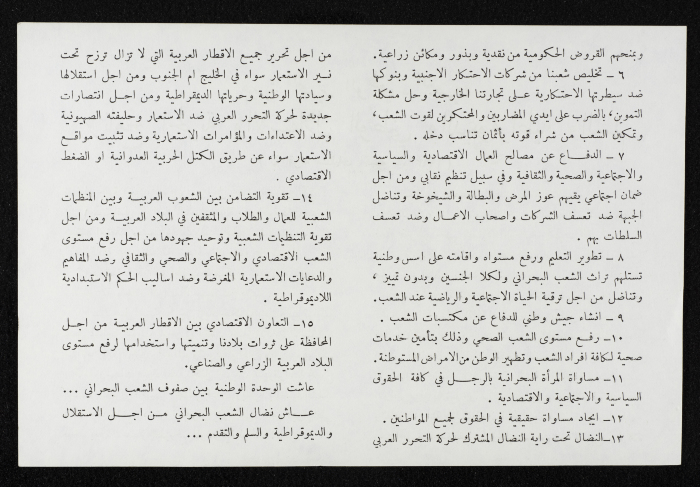 وبمنحهم القروض الحكومية من نقدية وبذور ومكائن زراعية.
٦ ـ تخليص شعبنا من شركات الاحتكار الاجنبية وبنوكها
ضد سيطرتها الاحتكارية على تجارتنا الخارجية وحل مشكلة
التموين، بالضرب على ايدي المضاربين والمحتكرين لقوت الشعب،
وتمكين الشعب من شراء قوته بأثمان تناسب دخله .
٧ ـ الدفاع عن مصالح العمال الاقتصادية والسياسية
والاجتماعية والصحية والثقافية وفي سبيل تنظيم نقابي ومن اجل
ضمان اجتماعي يقيهم عوز المرض والبطالة والشيخوخة وتناضل
الجبهة ضد تعسف الشركات واصحاب الاعمال وضد تعسف
السلطات بهم .
٨ ـ تطوير التعليم ورفع مستواه واقامته على اسس وطنية
تستلهم تراث الشعب البحراني ولكلا الجنسين وبدون تمييز ،
وتناضل من اجل ترقية الحياة الاجتماعية والرياضية عند الشعب.
٩ ـ انشاء جيش وطني للدفاع عن مكتسبات الشعب .
١٠ـ رفع مستوى الشعب الصحي وذلك بتأمين خدمات
صحية لكافة افراد الشعب وتطهير الوطن من الامراض المستوطنة.
١١ـ مساواة المرأة البحرانية بالرجل في كافة الحقوق
السياسية والاجتماعية والاقتصادية .
١٢ـ ايجاد مساواة حقيقية في الحقوق لجميع المواطنين .
١٣ـ النضال تحت راية النضال المشترك لحركة التحرر العربي
من اجل تحرير جميع الاقطار العربية التي لا تزال ترزح تحت
نير الاستعمار سواء في الخليج ام الجنوب ومن اجل استقلالها
وسيادتها الوطنية وحرياتها الديمقراطية ومن اجل انتصارات
جديدة لحركة التحرر العربي ضد الاستعمار وحليفته الصهيونية
وضد الاعتداءات والمؤامرات الاستعمارية وضد تثبيت مواقع
الاستعمار سواء عن طريق الكتل الحربية العدوانية او الضغط
الاقتصادي .
١٤ـ تقوية التضامن بين الشعوب العربية وبين المنظمات
الشعبية للعمال والطلاب والمثقفين في البلاد العربية ومن اجل
تقوية التنظيمات الشعبية وتوحيد جهودها من اجل رفع مستوى
الشعب الاقتصادي والاجتماعي والصحي والثقافي رضد المفاهيم
والدعايات الاستعمارية المغرضة وضد اساليب الحكم الاستبدادية
اللاديموقراطية .
١٥ـ التعاون الاقتصادي بين الاقطار العربية من اجل
المحافظة على ثروات بلادنا وتنميتها واستخدامها لرفع مستوى
البلاد العربية الزراعي والصناعي.
عاشت الوحدة الوطنية بين صفوف الشعب البحراني ...
عاش نضال الشعب البحراني من اجل الاستقلال
والديموقراطية والسلم والتقدم ...